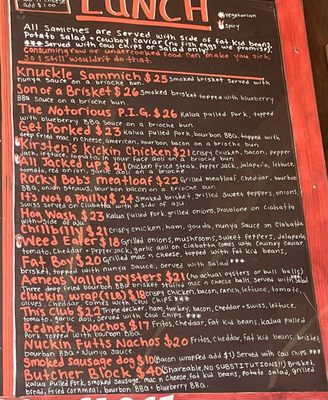 cheese
add $1.00
LUNCH
vegetarian
spicy
All Samiches are served with Side of fat kid beans,
Potato Salad + Cowboy Caviar (no fish eggs we promise)
*** Served with Cow chips or Salad only!
Consuming raw or undercooked food can make you sick,
So I still wouldn't do that.
Knuckle Sammich $25 Smoked brisket served with
nunya sauce on a brioche bun.
Son of a Brisket $26 Smoked brisket topped with blueberry
BBQ sauce on a brioche bun.
The Notorious P.I.G. $26 Kalua pulled Pork, topped
with blueberry BBQ sauce on a brioche bun.
Get Porked $23 Kalua Pulled Pork, bourbon BBQ, topped with
deep fried mac n cheese, american, bourbon bacon on a brioche bun.
Kirstens Kickin Chicken $21 Crispy Chicken, bacon, Pepper
Jack, lettuce, tomato, in your face aoli on a brioche bun.
All Jacked up $21 Chicken Fried Steak, Pepper Jack, jalapeño, lettuce,
tomato, red onion, garlic aoli on a brioche.
Rocky Bob's meatloof $22 Grilled meatloaf, Cheddar, bourbon
BBQ, onion Straws, bourbon bacon on a brioche bun.
It's Not a Philly $24 Smoked brisket, grilled Sweet Peppers, onions,
Swiss served on Ciabatta with a side of aju
Hog Wash $23 Kalua Pulled pork, grilled onions, Provolone on Ciabatta
with side of aju
Chrillbilly $21 Crispy chicken, ham, gouda, nunya sauce on Ciabatta
Weed Eater $18 Grilled onions, mushrooms, sweet Peppers, Jalapeño,
tomato, Cheddar + Pepper jack, garlic aoli on Ciabatta comes with Cowboy Caviar
Fat Boy $20 Grilled mac n cheese, topped with fat kid beans,
brisket, topped with nunya Sauce, served with Salad ***
Treeas Valley oysters $21 (No actual oysters or bull balls)
Three deep fried bourbon BBQ brisket stuffed mac n cheese balls, served with Salad
Cluckin wrap $18 Crispy Chicken, bacon, ranch, lettuce, tomato,
olives, Cheddar, comes with Cow Chips ***
This Club $22 Triple decker, ham, turkey, bacon, Cheddar + Swiss, lettuce,
tomato, garlic aoli, served with Cow Chips ***
Redneck Nachos $17 Fritos, Cheddar, Fat kid beans, kalua pulled
Pork topped with bourbon BBQ
Nuckin Futts Nachos $20 Fritos, Cheddar, fat kid beans, brisket,
bourbon BBQ + Nunya Sauce
Smoked Sausage dog $10 (Bacon wrapped add $1) Served with Cow Chips ***
Butcher Block $40 (Shareable, No SUBSTITUTIONS!!) Brisket,
Kalua Pulled Pork, smoked Sausage, Mac n Cheese, fat kid beans, Potato Salad, grilled
bread, fried cornmeal, bourbon BBQ + blueberry BBQ.